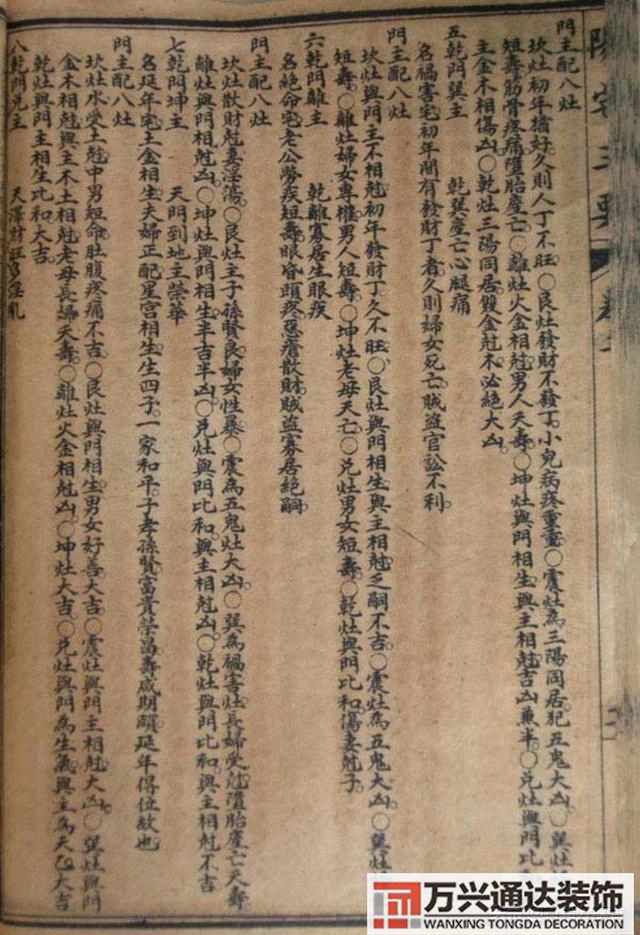 陽宅三要 卷二
門主配八灶
坎灶初年猶好久則人丁不旺〇艮灶發財不發丁小兒病疾重重〇震灶為三陽同居犯五鬼大凶〇巽灶
短壽筋骨疼痛墮胎產亡〇離灶火金相尅男人夭壽〇坤灶與門相生與主相尅吉凶兼半〇兌灶與門比
主金木相傷凶〇乾灶三陽同居雙金尅木必絕大凶
五乾門巽主　乾巽產亡心腿痛
名禍害宅初年間有發財丁者久則婦女死亡賊盗官訟不利
門主配八灶
坎灶與門主不相尅初年發財丁久不旺〇艮灶與門相生與主相尅乏嗣不吉〇震灶為五鬼大凶〇巽灶
短壽〇離灶婦女專權男人短壽〇坤灶老母夭亡〇兌灶男女短壽〇乾灶與門比和傷妻尅子
六乾門離主　乾離寡居生眼疾
名絕命宅老公勞疾短壽眼昏頭疼惡瘡散財賊盗寡居絕嗣
門主配八灶
坎灶散財尅妻淫蕩〇艮灶主子孫賢良婦女性暴〇震為五鬼灶大凶〇巽為禍害灶長婦受尅墮胎產亡夭壽
離灶與門相尅凶〇坤灶與門相生與主相生半吉半凶〇兌灶與門比和與主相尅凶〇乾灶與門比和與主相尅不吉
七乾門坤主　天門到地主榮華
名延年宅土金相生夫婦正配星宮相生生四子一家和平子孝孫賢富貴榮昌壽咸期頤延年得位故也
門主配八灶
坎灶水受土尅中男短命肚腹疼痛不吉〇艮灶與門相生男女好善大吉〇震灶與門主相尅大凶〇巽灶與門
金木相尅與主木土相尅老母長婦夭壽〇離灶火金相尅凶〇坤灶大吉〇兌灶與門為生氣與主為天乙大吉
乾灶與門主相生比和大吉
八乾門兌主　天澤財旺多淫亂
万兴通达装饰
WANXING TONGDA DECORATION